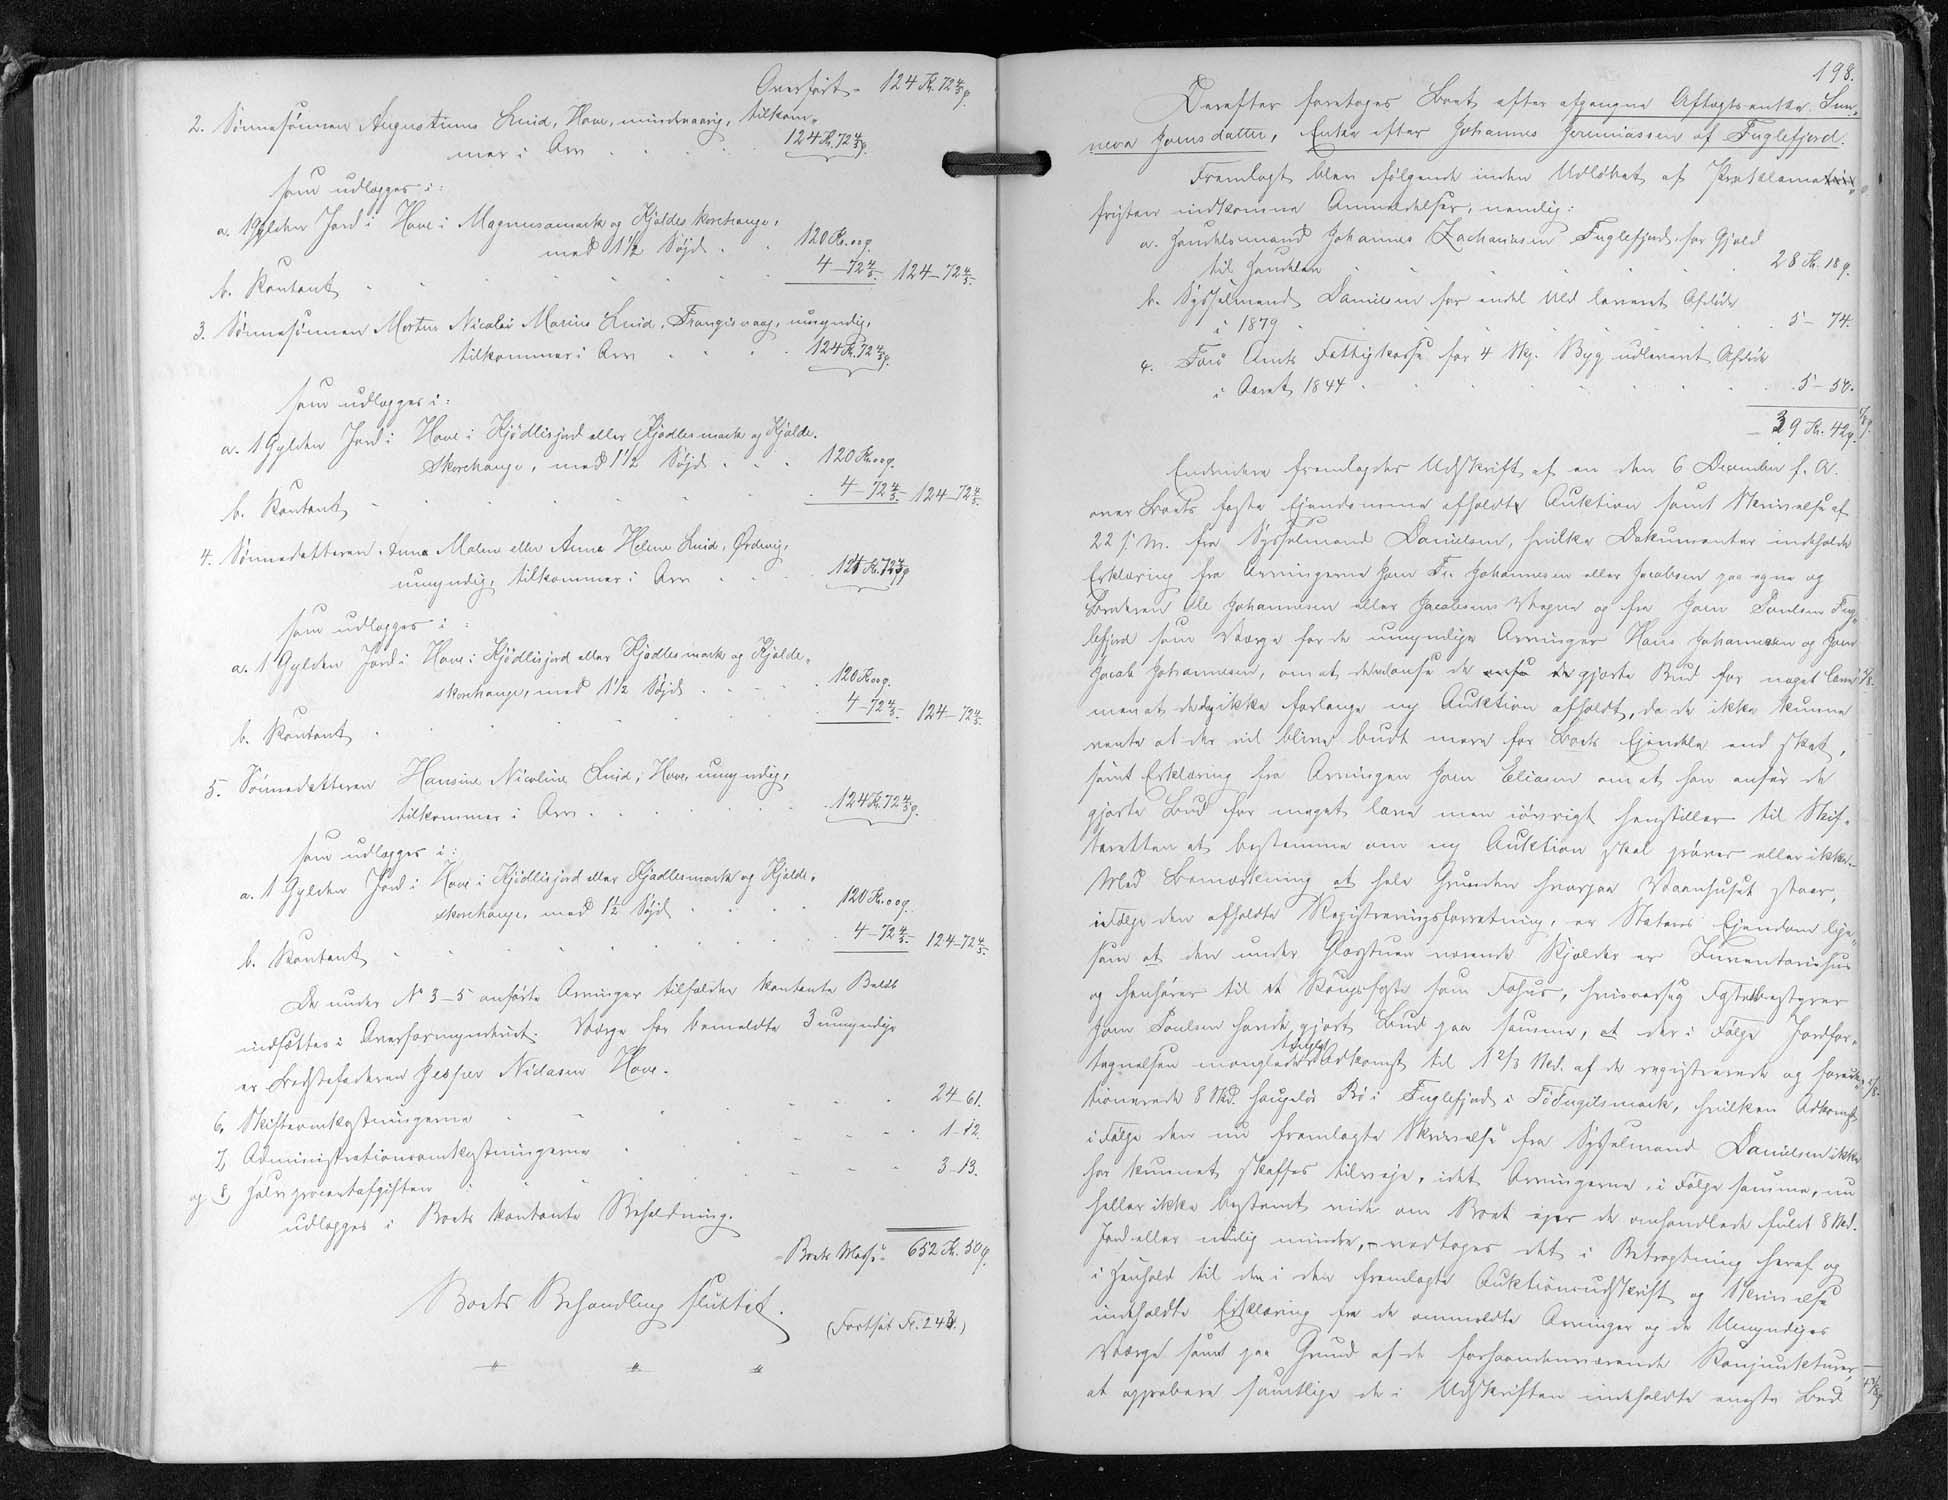 Overført - 124 Kr. 72 4/5 ø.
2. Sønnesønnen Augustinus Luid, Hove, mindreaarig, tilkom-
mer i Arv . . . . 124 Kr. 72 4/5 ø.
som udlægges i:
a. 1 Gylden Jord i Hove i Magnusamark og Kjaldeskorehauge,
med 1 1/2 Søjd . . 120 Kr. 00 ø.
b. Kontant . . . 4 - 72 4/5. 124 - 72 4/5.
3. Sønnesønnen Morten Nicolai Marius Luid, Frangisvaag, umyndig,
tilkommer i Arv . . . . 124 Kr. 72 4/5 ø.
som udlægges i:
a. 1 Gylden Jord i Hove i Kjødlisjord eller Kjødlesmark og Kjalde-
skorehauge, med 1 1/2 Søjd . . . 120 Kr. 00 ø.
b. Kontant . . . 4 - 72 4/5. 124 - 72 4/5.
4. Sønnedatteren Anna Malene eller Anna Helene Luid, Ørdevig,
umyndig, tilkommer i Arv . . . 124 Kr. 72 4/5 ø.
som udlægges i:
a. 1 Gylden Jord i Hove i Kjødlisjord eller Kjødlesmark og Kjalde-
skorehauge, med 1 1/2 Søjd . . . 120 Kr. 00 ø.
b. Kontant . . . 4 - 72 4/5. 124 - 72 4/5.
5. Sønnedatteren Hansine Nicoline Luid, Hove, umyndig,
tilkommer i Arv . . . . 124 Kr. 72 4/5 ø.
som udlægges i:
a. 1 Gylden Jord i Hove i Kjødlisjord eller Kjødlesmark og Kjalde-
skorehauge, med 1 1/2 Søjd . . . 120 Kr. 00 ø.
b. Kontant . . . 4 - 72 4/5. 124 - 72 4/5.
De under No 3-5 anførte Arvinger tilfaldne kontante Beløb
indsættes i Overformynderiet. Værge for bemeldte 3 umyndige
er Bedstefaderen Jesper Niclasen Hove.
6. Skifteomkostningerne . . . 24 - 61.
7. Administrationsomkostningerne . . . 1 - 12.
og 8. Halvprocentafgiften . . . 3 - 13.
udlægges i Boets kontante Beholdning.
Boets Masse 652 Kr. 50 ø.
Boets Behandling sluttet.
(Fortsat Fol. 242.)
198.
Derefter foretoges Boet efter afgangne Aftægtsenke Sun-
neva Joensdatter, Enke efter Johannes Jeremiassen af Fuglefjord.
Fremlagt blev følgende inden Udløbet af Proklama
fristen indkomne Anmeldelser, nemlig:
a. Handelsmand Johannes Zachariasen Fuglefjord, for Gjæld
til Handelen . . . 28 Kr. 18 ø.
b. Sysselmand Danielsen for endel Uld leveret Afdøde
i 1879 . . . 5 - 74.
c. Færø Amts Fattigkasse for 4 Skp. Byg udleveret Afdøde
i Aaret 1844 . . . 5 - 50.
39 Kr. 42 ø.
Endvidere fremlagdes Udskrift af en den 6 December f. A.
over Boets faste Ejendomme afholdt Auktion samt Skrivelse af
22 f. M. fra Sysselmand Danielsen, hvilke Dokumenter indeholde
Erklæring fra Arvingerne Joen Fr. Johannesen eller Jacobsen paa egne og
Broderen Ole Johannesen eller Jacobsens Vegne og fra Joen Poulsen Fug-
lefjord som Værge for de umyndige Arvinger Hans Johannesen og Joen
Jacob Johannesen, om at de anse de gjorte Bud for noget lave,
men at de dog ikke forlange ny Auktion afholdt, da de ikke kunne
vente at der vil blive budt mere for Boets Ejendele end sket,
samt Erklæring fra Arvingen Joen Eliasen om at han anser de
gjorte Bud for meget lave men iøvrigt henstiller til Skif-
teretten at bestemme om ny Auktion skal prøves eller ikke.
Med Bemærkning at hele Grunden hvorpaa Vaanhuset staar,
ifølge den afholdte Registreringsforretning, er Statens Ejendom lige-
som at den under Glasstuen værende Kjælder er Inventariehus
og henhører til et Kongsfæste som Fæhus, hvisaarsag Fæstebestyrer
Joen Poulsen havde gjort Bud paa samme, at der i Følge Jordfor-
tegnelsen mangler Adkomst til 1 2/3 Skd. af de registrerede og
tionerede 8 Skd. haugeløs Bø i Fuglefjord i Føfugilsmark, hvilken Adkomst
ifølge den nu fremlagte Skrivelse fra Sysselmand Danielsen ikke
har kunnet skaffes tilveje, idet Arvingerne, i Følge samme, nu
heller ikke bestemt vide om Boet ejer de omhandlede fulde 8 Skd.
Jord eller mulig mindre, - vedtoges det i Betragtning heraf og
i Henhold til den i den fremlagte Auktionsudskrift og Skrivelse
indeholdte Erklæring fra de anmeldte Arvinger og de Umyndiges
Værge samt paa Grund af de forhaandenværende Konjunkturer,
at approbere samtlige de i Udskriften indeholdte Bud